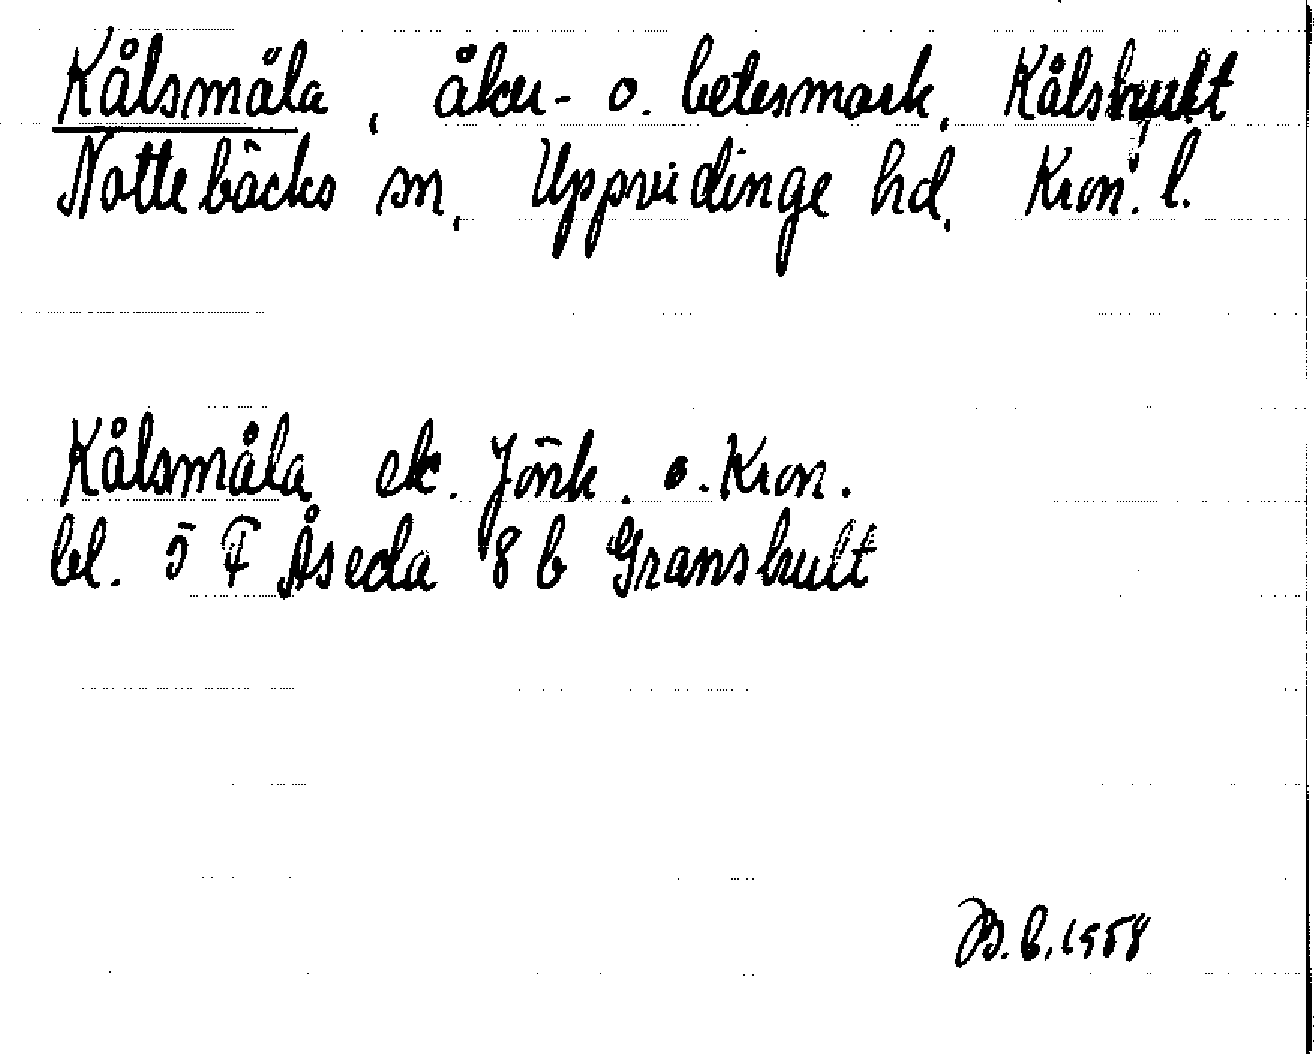 Kålsmåla, åker- o. betesmark, Kålshult
Nottebäcks sn, Uppvidinge hd, Kron. l.
Kålsmåla ek. Jönk. o. Kron.
bl. 5 F Åseda 8 b Granshult
B. b. 1958